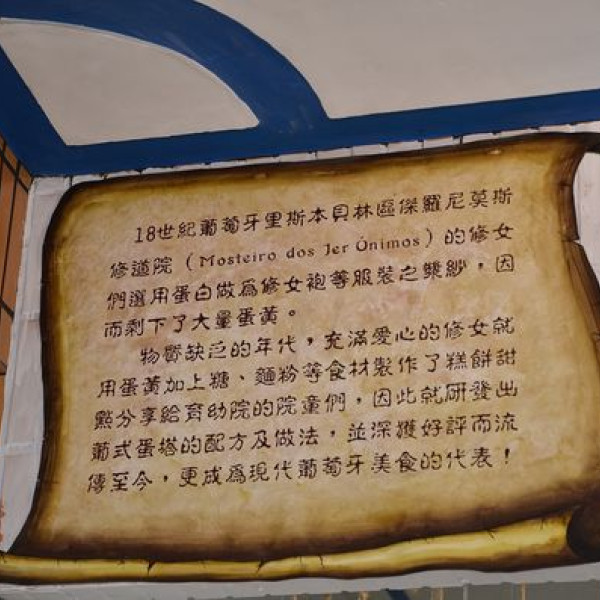 18世紀葡萄牙里斯本貝林區傑羅尼莫斯
修道院（Mosteiro dos Jer Ónimos）的修女
們選用蛋白做為修女袍等服裝之漿紗，因
而剩下了大量蛋黃。
物質缺乏的年代，充滿愛心的修女就
用蛋黃加上糖、麵粉等食材製作了糕餅甜
點分享給育幼院的院童們，因此就研發出
葡式蛋塔的配方及做法，並深獲好評而流
傳至今，更成為現代葡萄牙美食的代表！